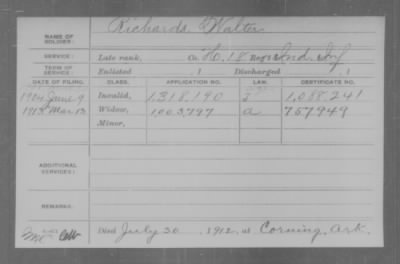 Richards Walter
NAME OF SOLDIER:
SERVICE: Late rank, Co. H, 18 Reg't Ind. Inf
TERM OF SERVICE: Enlisted , 1 Discharged , 1
DATE OF FILING. CLASS. APPLICATION NO. LAW. CERTIFICATE NO.
1904 June 9 Invalid, 1,318,190 1,088,241
1913 Mar 13 Widow, 1003,797 a 757949
Minor,
ADDITIONAL SERVICES:
REMARKS:
Died July 30, 1912, at Corning, Ark.